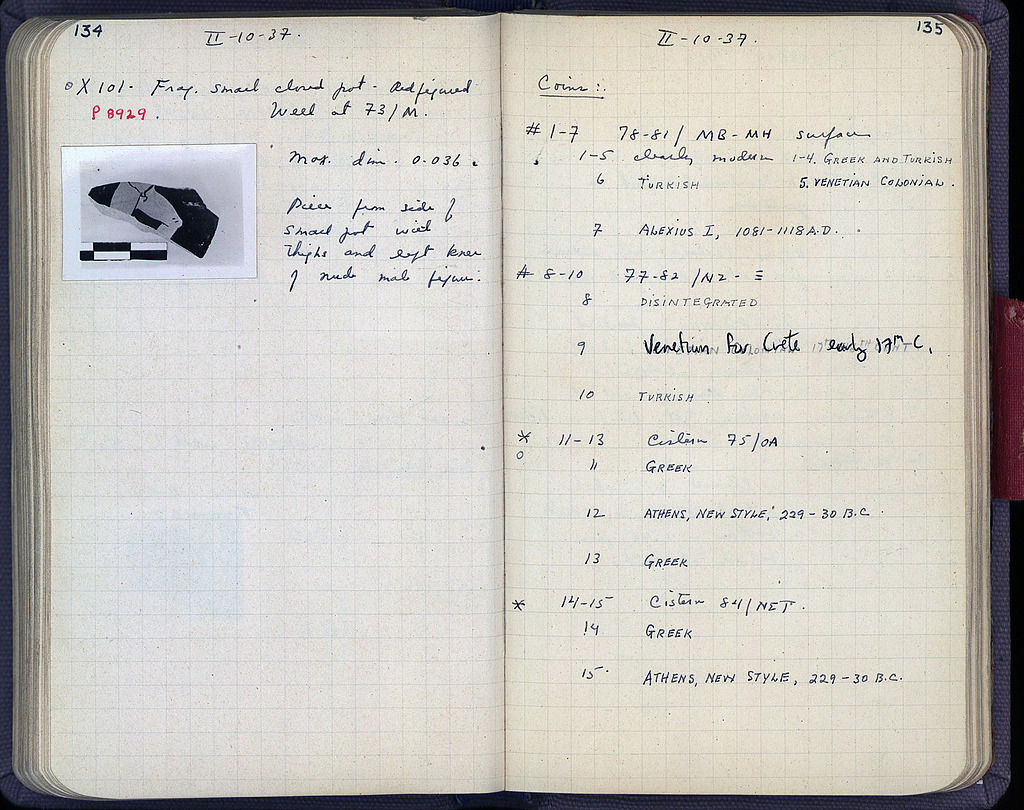 134
II-10-37.
X 101. Frag. small closed pot. Red figured
P 8929.
Well at 73/M.
Max. dim. 0.036.
Piece from side of
small pot with
thighs and left knee
of nude male figure.
135
II-10-37.
Coins:
# 1-7 78-81/MB-MH surface
1-5 clearly modern 1-4. GREEK AND TURKISH
6 TURKISH 5. VENETIAN COLONIAL.
7 ALEXIUS I, 1081-1118 A.D.
# 8-10 77-82/NZ-Ξ
8 DISINTEGRATED
9 Venetian for Crete early 17th C.
10 TURKISH
* 11-13 Cistern 75/ΟΑ
11 GREEK
12 ATHENS, NEW STYLE, 229-30 B.C.
13 GREEK
* 14-15 Cistern 84/ΝΣΤ.
14 GREEK
15 ATHENS, NEW STYLE, 229-30 B.C.